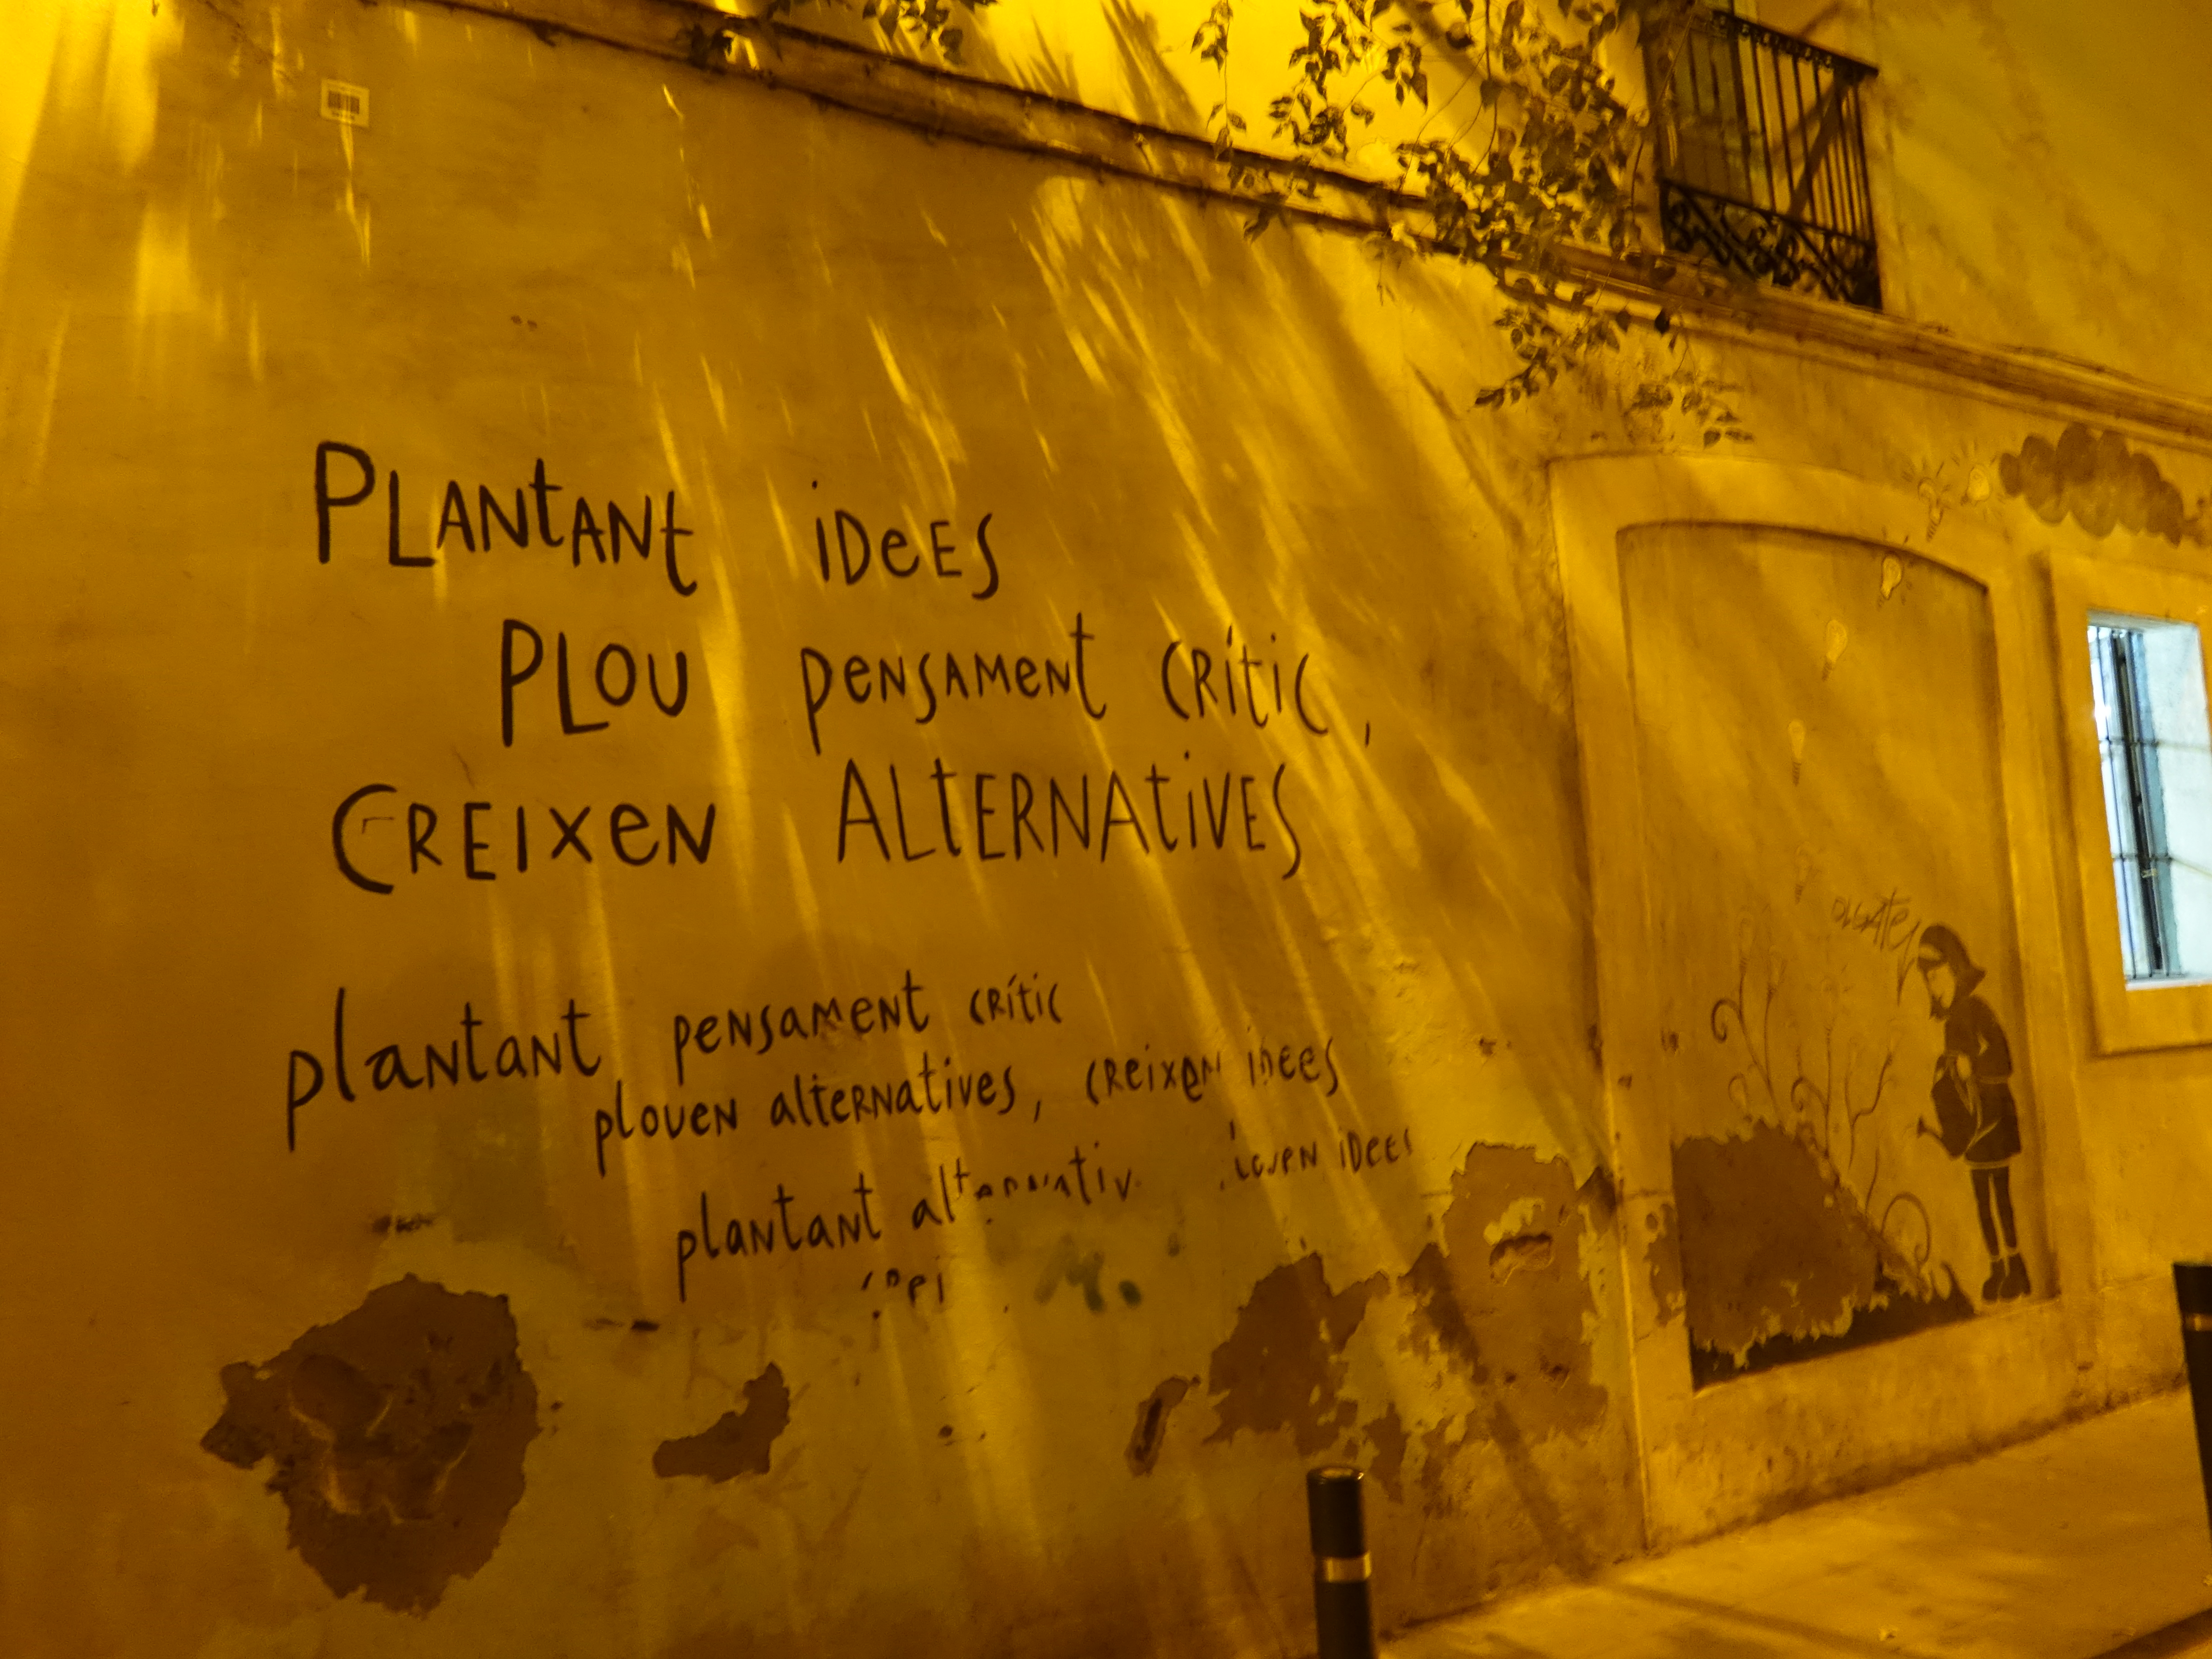 PLANtANt iDeES
PLOU peNSAMeNt CRític,
CREIXeN ALtERNAtiVES
plaNtaNt peNsameNt cRític
ploueN alteRNatives, cReixeN iDees
plaNtaNt iDees